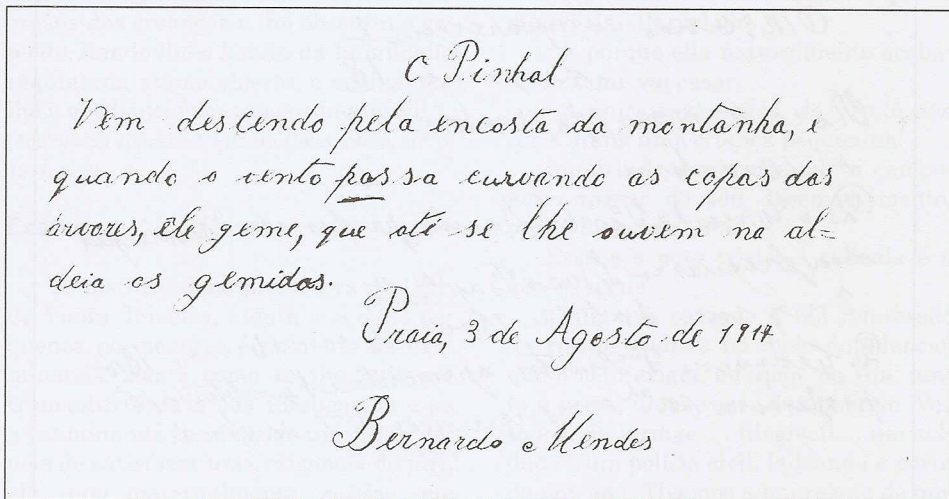 O Pinhal
Vem descendo pela encosta da montanha, e
quando o vento passa curvando as copas das
árvores, êle geme, que até se lhe ouvem na al-
deia os gemidos.
Praia, 3 de Agosto de 1914
Bernardo Mendes